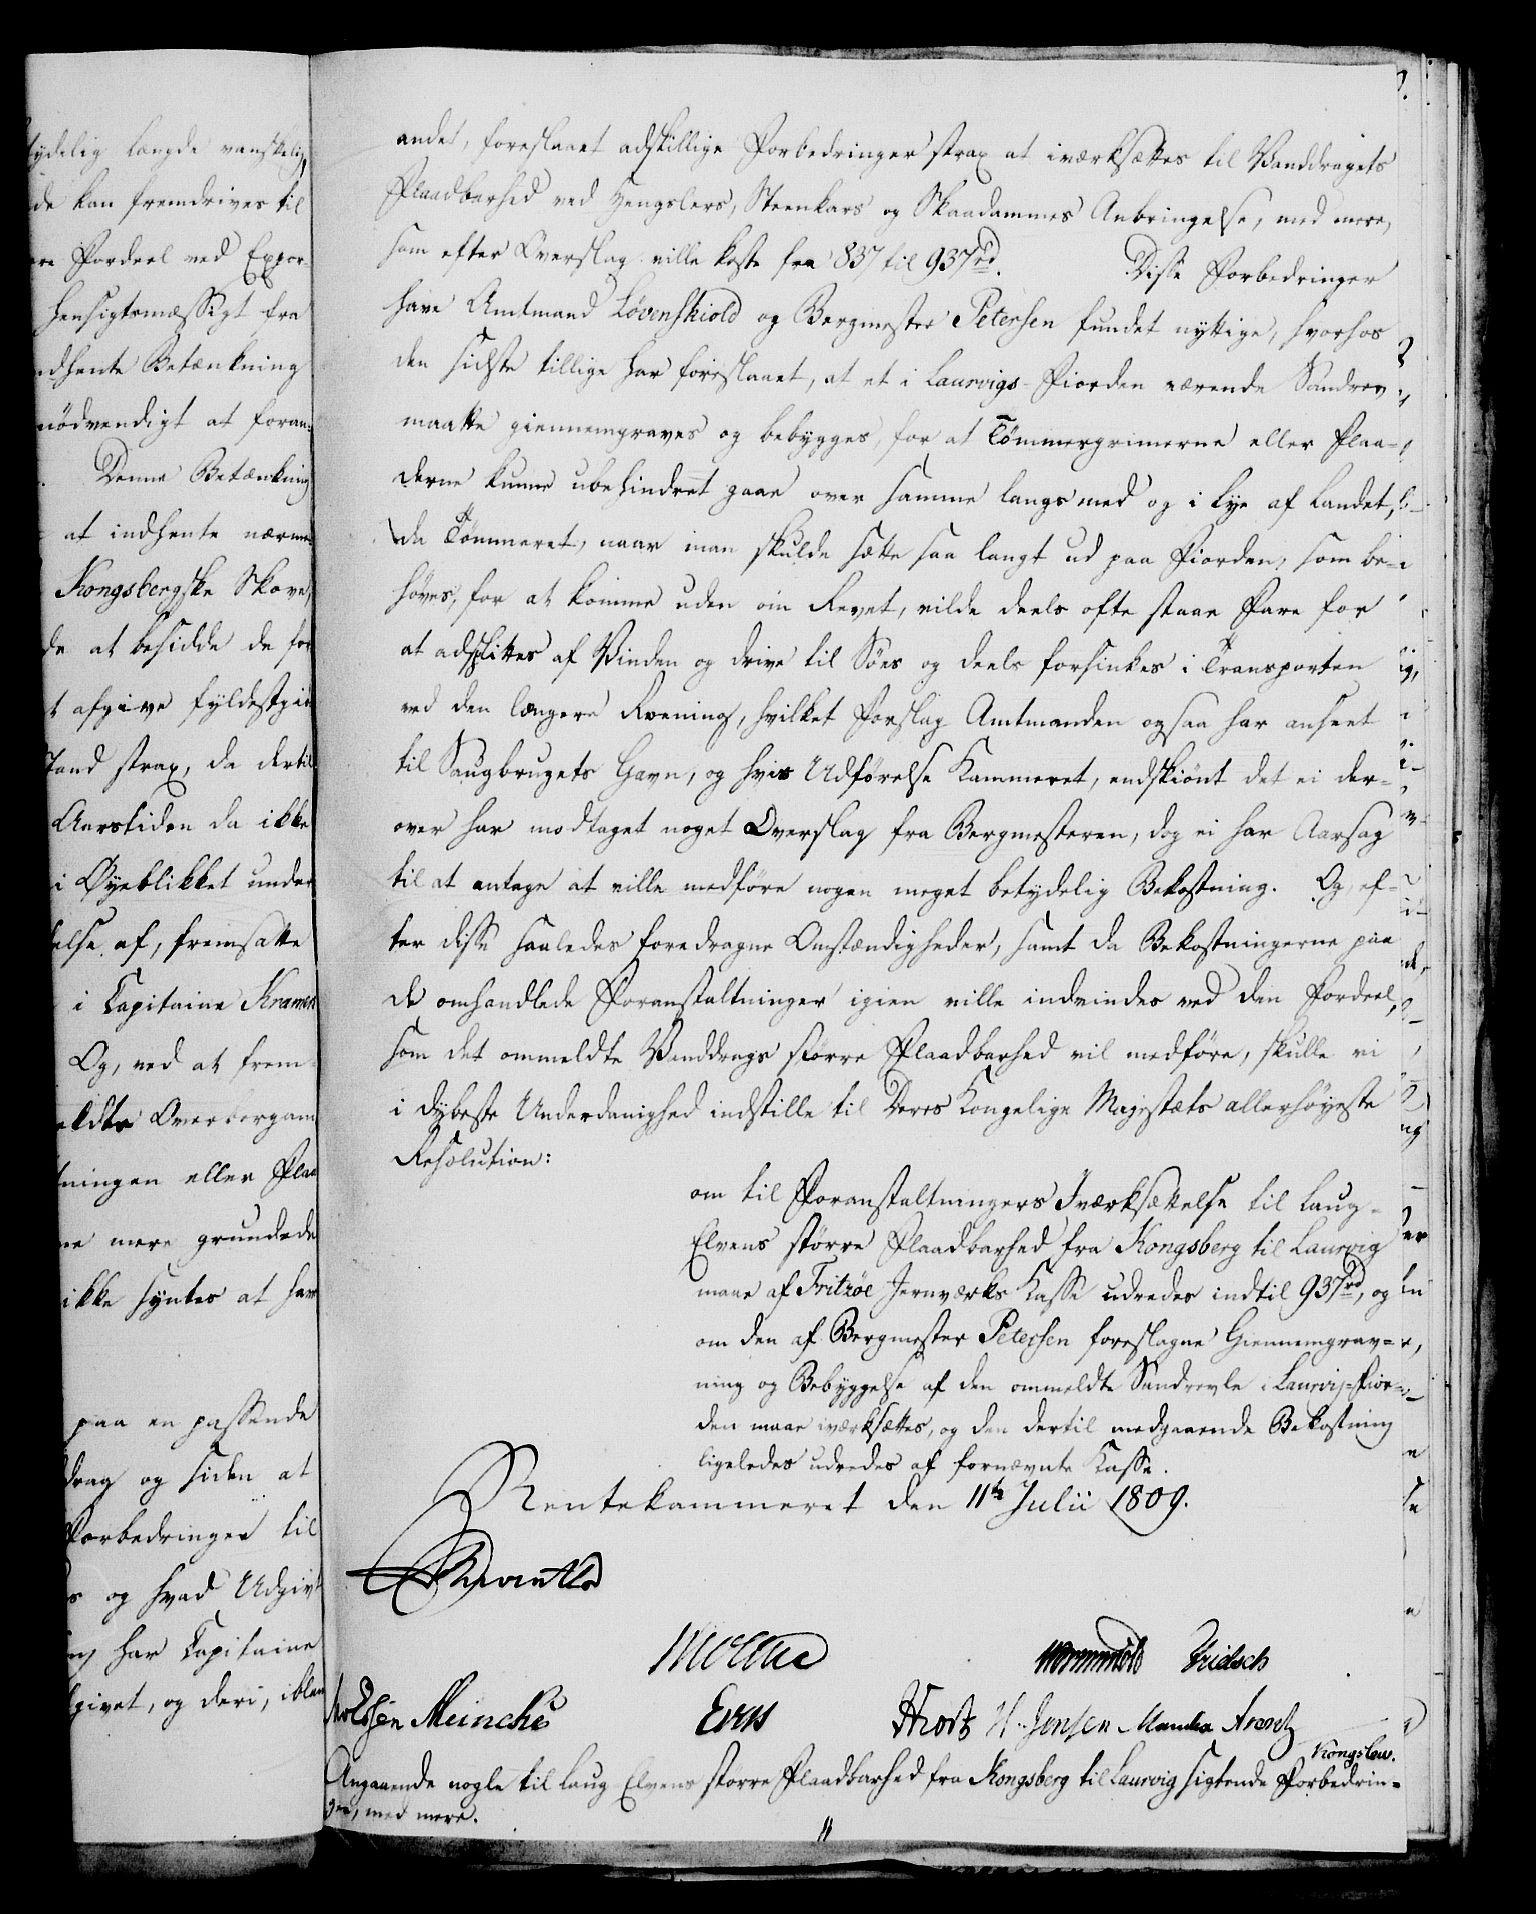 tydelig længde vanskelig,
de kan fremdrives til
Fordeel ved Expor-
hensigtsmæssigt fra
indhente Betænkning
nödvendigt at foran-
Denne Betænkning
at indhente nærme-
Kongsbergske Skove,
at besidde de for
afgive fyldestgiö
strax, da dertil
Aarstiden da ikke
i Øyeblikket under
else af, fremsatte
i Capitaine Kramer
Og, ved at frem-
meldte Overbergam
ningen eller Flaa
mere grundede
ikke syntes at har
paa en passende
drag og siden at
Forbedringer til
og hvad Udgivt
har Capitaine
givet, og deri, iblan
andet, foreslaaet adskillige Forbedringer strax at iværksættes til Vanddragets
Flaadbarhed ved Hengslers, Steenkars og Skaadammes Anbringelse, med mere,
som efter Overslag ville koste fra 837 til 937 rd. Disse Forbedringer
have Amtmand Løvenskiold og Bergmester Petersen fundet nyttige, hvorhos
den sidste tillige har foreslaaet, at et i Laurvigs-Fiorden værende Sandrev
maatte giennemgraves og bebygges, for at Tömmergrimerne eller Flaa-
derne kunne ubehindret gaae over samme langs med og i Lye af Landet,
da Tömmeret, naar man skulde sætte saa langt ud paa Fiorden, som be-
höves, for at komme uden om Revet, vilde deels ofte staae Fare for
at adsplittes af Vinden og drive til Söes og deels forsinkes i Transporten
ved den længere Roening, hvilket Forslag Amtmanden ogsaa har anseet
til Saugbrugets Gavn, og hvis Udførelse Kammeret, endskiönt det ei der-
over har modtaget noget Overslag fra Bergmesteren, dog ei har Aarsag
til at antage at ville medföre nogen meget betydelig Bekostning. Og, ef-
ter disse saaledes foredragne Omstændigheder, samt da Bekostningerne paa
de omhandlede Foranstaltninger igien ville indvindes ved den Fordeel,
som det ommeldte Vanddrags större Flaadbarhed vil medföre, skulle vi
i dybeste Underdanighed indstille til Deres Kongelige Majestæts allerhöyeste
Resolution:
om til Foranstaltningers Iværksættelse til Laug-
Elvens större Flaadbarhed fra Kongsberg til Laurvig
maae af Fritzöe Jernværks Kasse udredes indtil 937 rd, og
om den af Bergmester Petersen foreslagne Giennemgrav-
ning og Bebyggelse af den ommeldte Sandrevle i Laurvig-Fior-
den maae iværksættes, og den dertil medgaaende Bekostning
ligeledes udredes af fornævnte Kasse.
Rentekammeret den 11te Julii 1809.
Reventlo
Moltke
Wormskiold Fridsch
Meincke Hrost H. Jensen Manthe Arentz
Kongslew.
Angaaende nogle til Laug Elvens större Flaadbarhed fra Kongsberg til Laurvig sigtende Forbedrin-
ger, med mere.